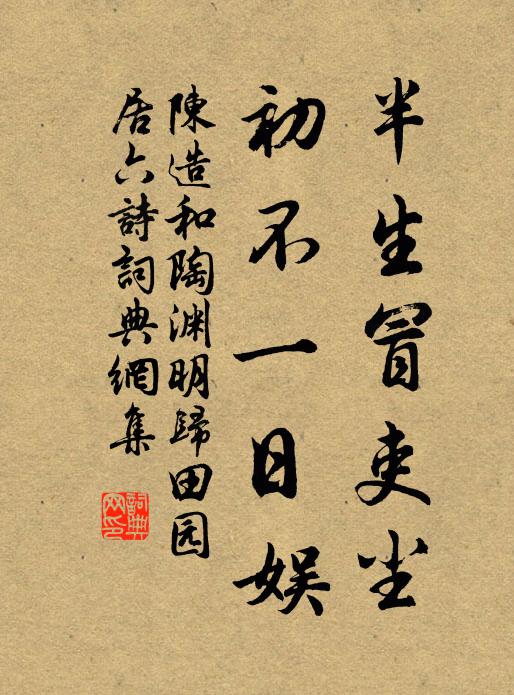 半生冒吏尘
初不一日娱
陳造和陶渊明歸田园
居六詩詞典網集
詞典网印